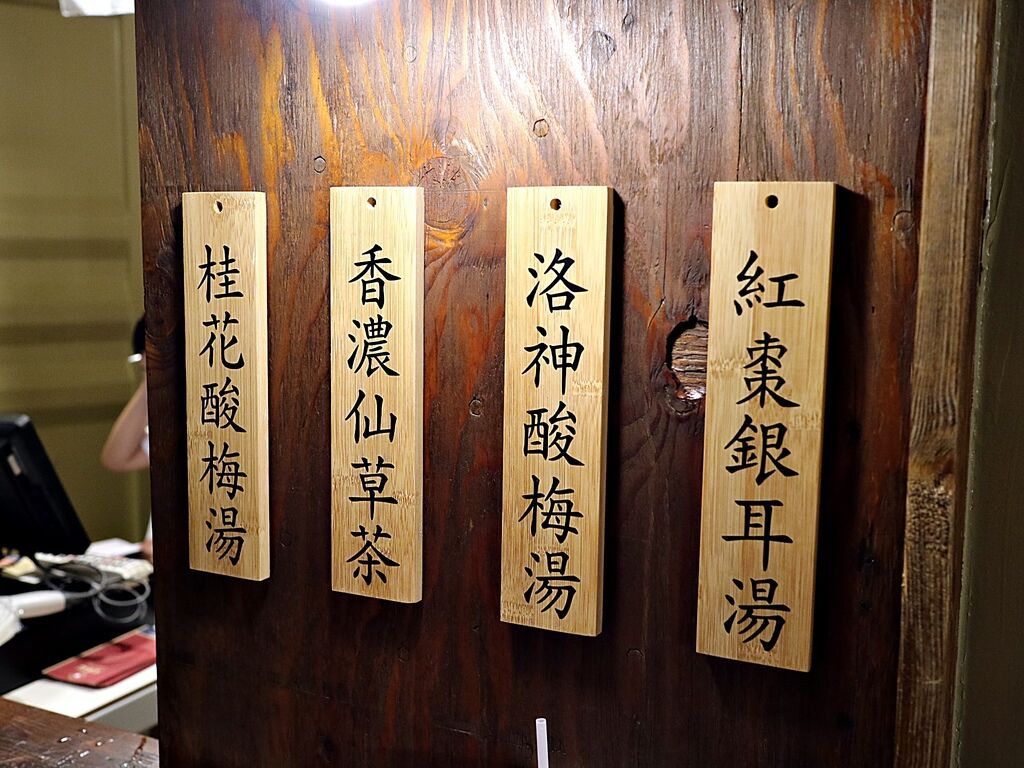 紅棗銀耳湯
洛神酸梅湯
香濃仙草茶
桂花酸梅湯